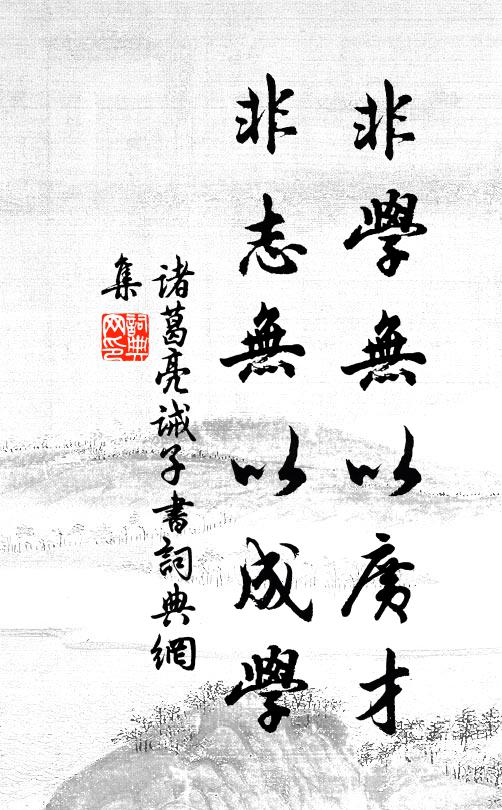 非學無以廣才
非志無以成學
諸葛亮誡子書詞典網
集
詞典
网印